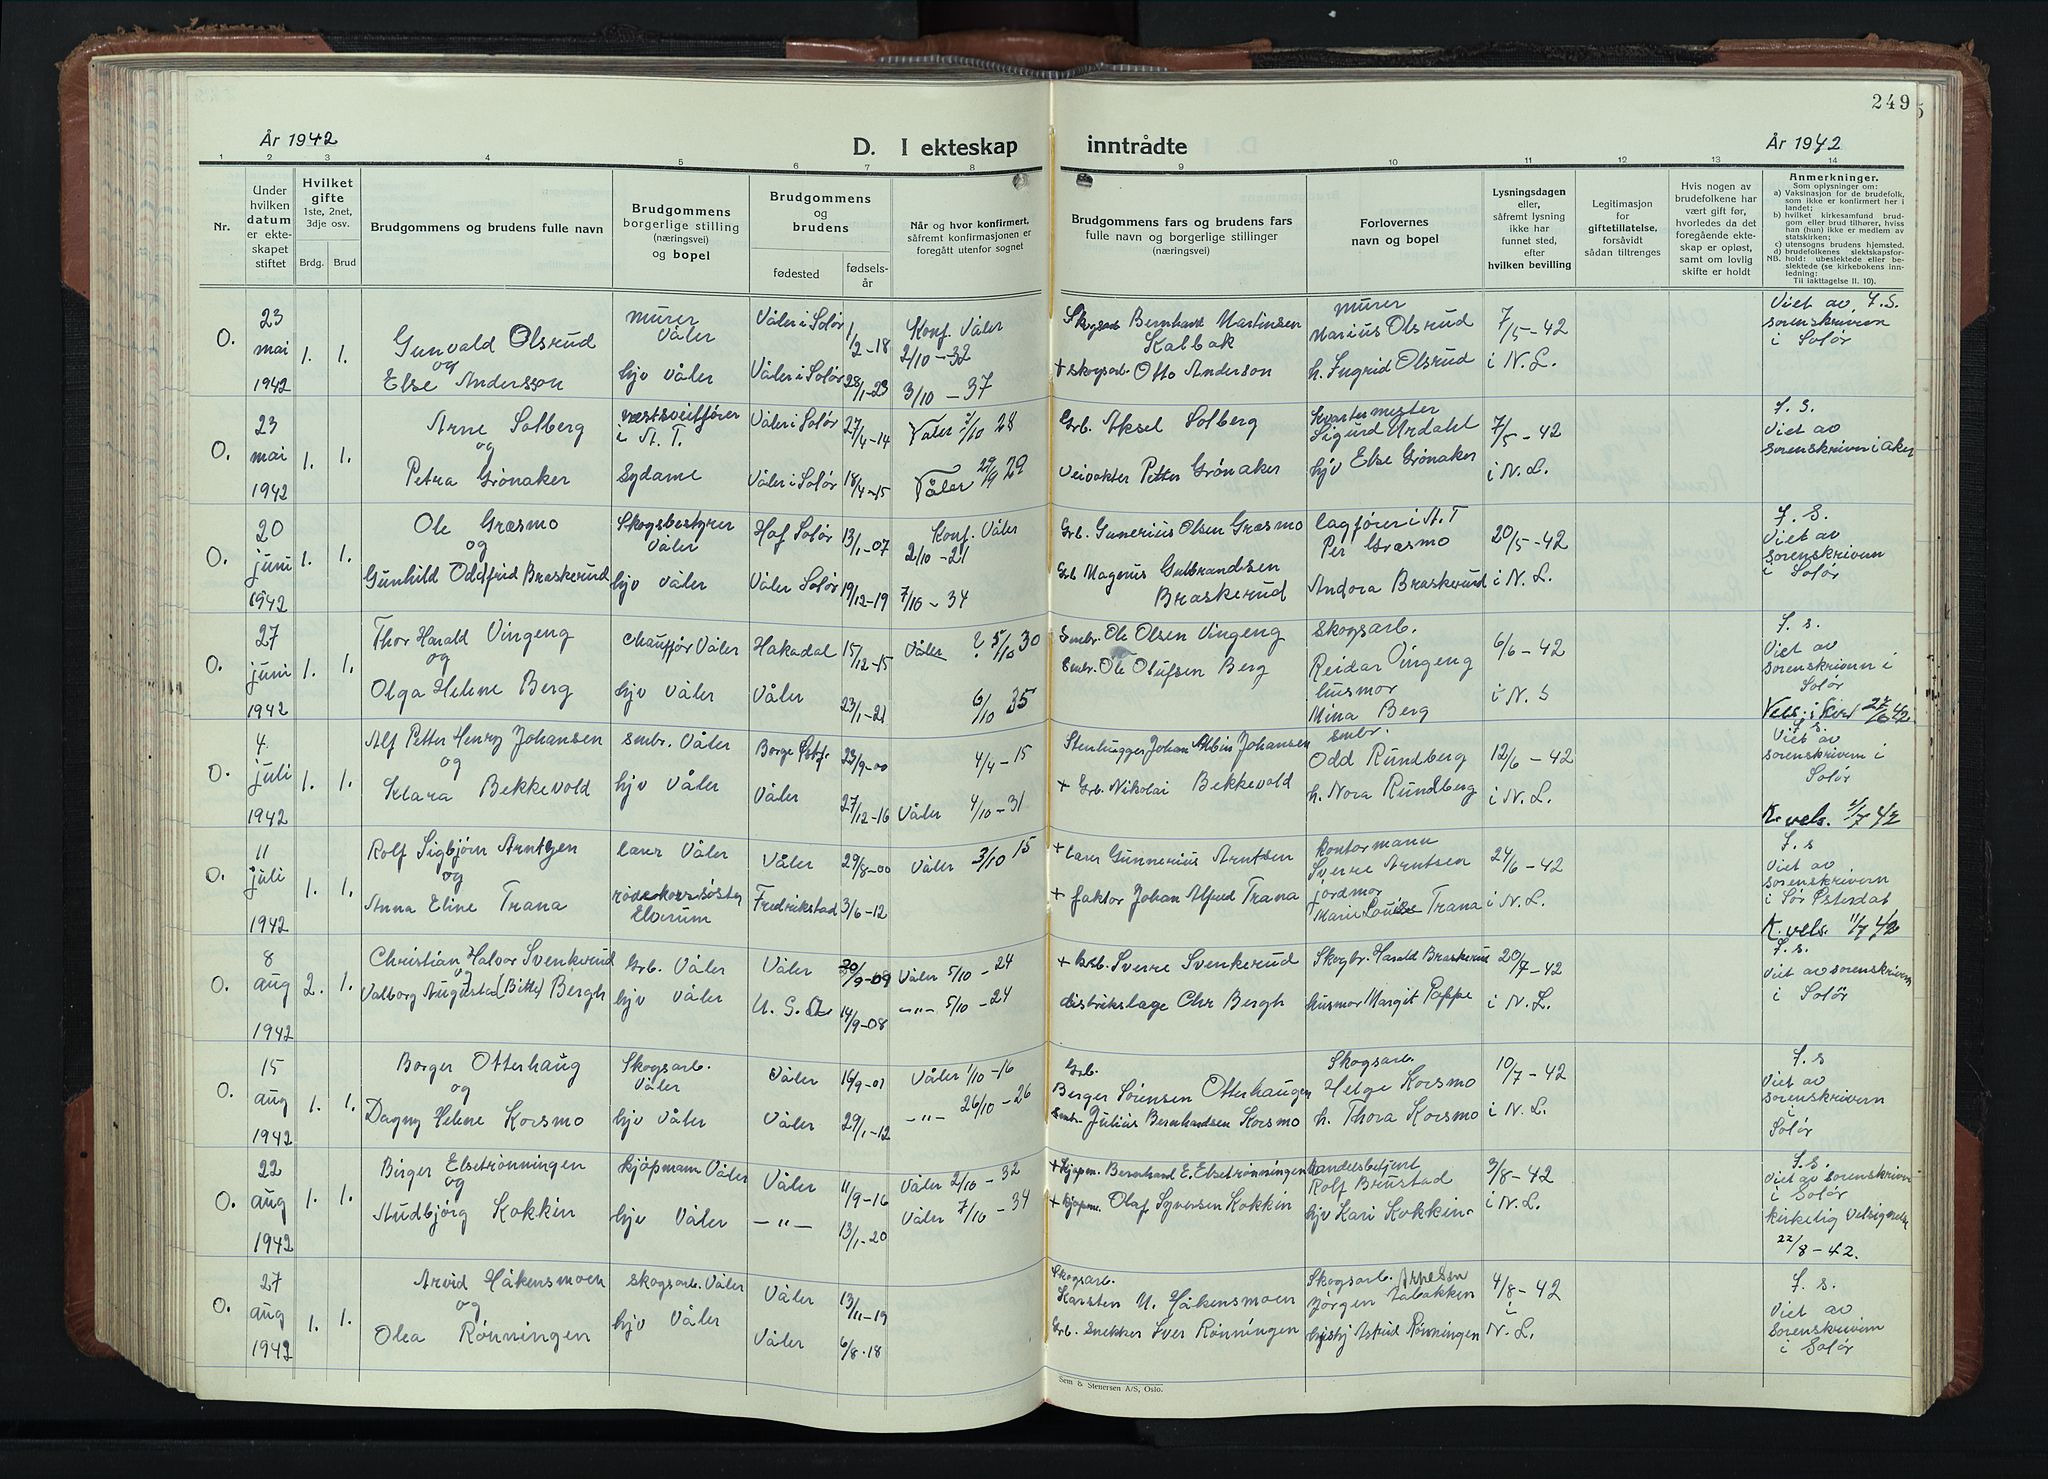 249
År 1942
D. I ekteskap inntrådte
År 1942
1 2 3 4 5 6 7 8 9 10 11 12 13 14
Nr.
Under hvilken datum er ekteskapet stiftet
Hvilket gifte
1ste, 2net, 3dje osv.
Brdg. Brud
Brudgommens og brudens fulle navn
Brudgommens borgerlige stilling (næringsvei) og bopel
Brudgommens og brudens
fødested
fødselsår
Når og hvor konfirmert, såfremt konfirmasjonen er foregått utenfor sognet
Brudgommens fars og brudens fars fulle navn og borgerlige stillinger (næringsvei)
Forlovernes navn og bopel
Lysningsdagen eller, såfremt lysning ikke har funnet sted, efter hvilken bevilling
Legitimasjon for giftetillatelse, forsåvidt sådan tiltrenges
Hvis nogen av brudefolkene har vært gift før, hvorledes da det foregående ekteskap er opløst, samt om lovlig skifte er holdt
Anmerkninger.
Som oplysninger om:
a) Vaksinasjon for de brudefolk, som ikke er konfirmert her i landet;
b) hvilket kirkesamfund brudgom eller brud tilhører, hviss han (hun) ikke er medlem av statskirken;
c) utensogns brudens hjemsted.
d) brudefolkenes slektskapsforhold: ubeslektede eller beslektede (se kirkebokens innledning:
NB.
Til iakttagelse II. 10).
O. 23 mai 1942 1. 1.
Gunvald Olsrud
og
Else Andersson
murer Våler
hjv Våler
Våler i Solør 1/2-18
Våler i Solør 28/1-23
Konf. Våler 2/10-32
3/10-37
Skogsarb Bernhard Martinsen Kalbak
+ skogsarb. Otto Anderson
murer Marius Olsrud
h. Ingrid Olsrud
7/5-42 i N. L.
Viet av f. S. sorenskrivern i Solør
O. 23 mai 1942 1. 1.
Arne Solberg
og
Petra Grønaker
i A. T.
Sydame
Våler i Solør 27/4-14
Våler i Solør 18/4-15
Våler 7/10 28
Våler 29/9 29
Grb. Aksel Solberg
veivokter Petter Grønaker
Kvartermester Sigurd Årdahl
hjv Else Grønaker
7/5-42 i N. L.
f. S. Viet av Sorenskrivern i Aker
O. 20 juni 1942 1. 1.
Ole Græsmo
og
Gunhild Oddfrid Braskerud
Skogsbestyrer Våler
hjv Våler
Hof Solør 13/1-07
Våler Solør 19/12-19
Konf. Våler 2/10-21
7/10-34
Grb. Gunerius Olsen Græsmo
Grb Magnus Gulbrandsen Braskerud
lagfører i A. T Per Græsmo
Andora Braskerud
20/5-42 i N. L.
f. S. Viet av sorenskrivern i Solør
O. 27 juni 1942 1. 1.
Thor Harald Vingeng
og
Olga Helene Berg
Chauffør Våler
hjv Våler
Hakadal 15/12-15
Våler 23/1-21
Våler ? 5/10 30
6/10 35
Smbr. Ole Olsen Vingeng
Smbr. Ole Olufsen Berg
Skogsarb. Reidar Vingeng
husmor Mina Berg
6/6-42 i N. S
f. s. Viet av sorenskrivern i Solør
Vels. i kirk 27/6 42
O. 4. juli 1942 1. 1.
Alf Petter Henry Johansen
og
Klara Bekkevold
smbr. Våler
hjv Våler
Borge Østf. 23/9-00
Våler 27/12-16
4/4-15
Våler 4/10-31
Stenhugger Johan Albin Johansen
+ Grb. Nikolai Bekkevold
smbr. Odd Rundberg
h. Nora Rundberg
12/6-42 i N. L.
f. s. Viet av sorenskrivern i Solør
K. vels. 4/7 42
O. 11 juli 1942 1. 1.
Rolf Sigbjørn Arntzen
og
Anna Eline Trana
lærer Våler
rødekorssøster Elverum
Våler 29/8-00
Fredrikstad 3/6-12
Våler 3/10 15
+ lærer Gunnerius Arntsen
+ faktor Johan Alfred Trana
kontormann Sverre Arntsen
jordmor Marie Louise Trana
24/6-42 i N. L.
f. s Viet av sorenskrivern i Sør Østerdal
K. vels. 11/7 42
O. 8 aug 1942 2. 1.
Christian Halvor Svenkerud
og
Valborg Augusta (Bitte) Bergh
Grb. Våler
hjv Våler
Våler 30/9-09
U. S. A. 14/9-08
Våler 5/10-24
-"- 5/10-24
+ Grb. Sverre Svenkerud
distriktslæge Chr Bergh
Skogbr. Harald Braskerud
husmor Margit Pappe
20/7-42 i N. L.
f. s. Viet av sorenskrivern i Solør
O. 15 aug 1942 1. 1.
Borger Otterhaug
og
Dagny Helene Korsmo
Skogsarb. Våler
hjv Våler
Våler 16/9-01
Våler 29/1-12
Våler 1/10-16
-"- 26/10-26
Grb. Berger Sørensen Otterhaugen
Smbr. Julius Bernhardsen Korsmo
Skogsarb. Helge Korsmo
h. Thora Korsmo
10/7-42 i N. L.
f. s Viet av sorenskrivern i Solør
O. 22 aug 1942 1. 1.
Birger Elsetrønningen
og
Audbjørg Kokkin
Kjøpmann Våler
hjv Våler
Våler 11/9-16
-"- 13/1-20
Våler 2/10-32
Våler 7/10-34
+ Kjøpm. Bernhard E. Elsetrønningen
+ kjøpm. Olaf Syversen Kokkin
Handelsbetjent Rolf Brustad
hjv Kari Kokkin
3/8-42 i N. L.
f. s. Viet av sorenskrivern i Solør
kirkelig Velsignelse 22/8-42.
O. 27 aug 1942 1. 1.
Arvid Håkensmoen
og
Olea Rønningen
skogsarb. Våler
hjv Våler
Våler 13/11-19
Våler 6/8-18
Skogsarb. Karsten U. Håkensmoen
Grb. Snekker Iver Rønningen
Skogsarb. Jørgen Arnesen Tabakken
Astrid Rønningen
4/8-42 i N. L.
f. s. Viet av Sorenskrivern i Solør
Sem & Stenersen A/S, Oslo.